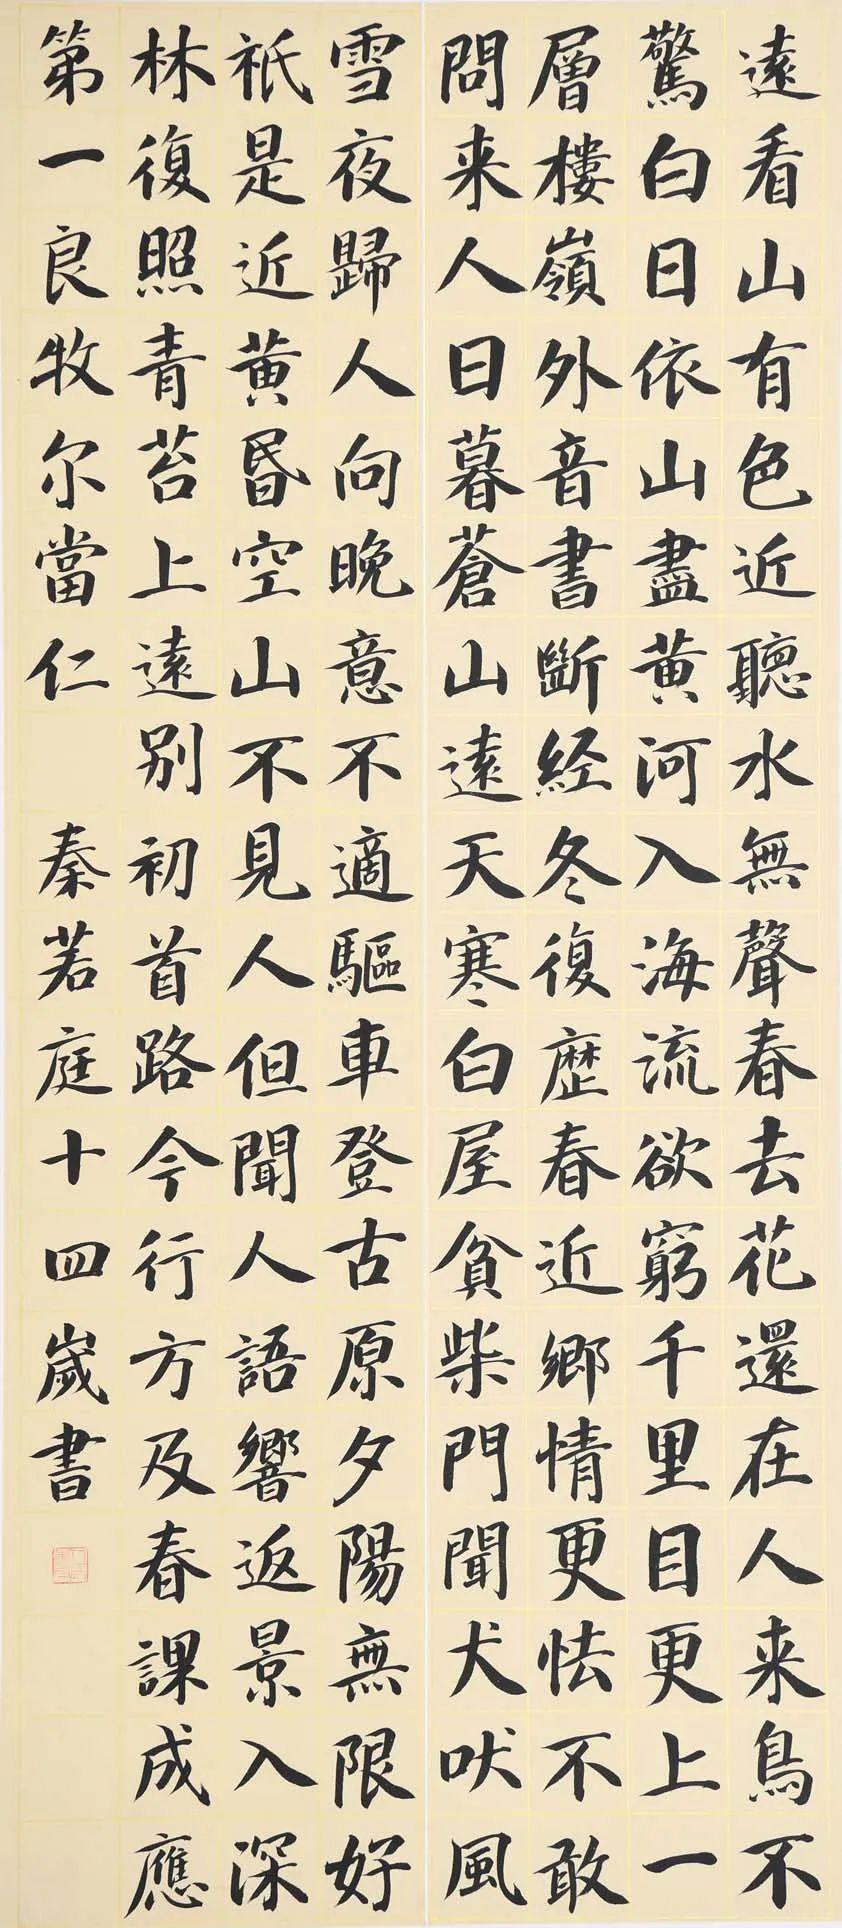 遠看山有色近聽水無聲春去花還在人来鳥不
驚白日依山盡黃河入海流欲窮千里目更上一
層樓嶺外音書斷経冬復歷春近鄉情更怯不敢
問来人日暮蒼山遠天寒白屋貧柴門聞犬吠風
雪夜歸人向晚意不適驅車登古原夕陽無限好
祇是近黃昏空山不見人但聞人語響返景入深
林復照青苔上遠別初首路今行方及春課成應
第一良牧尔當仁
秦若庭十四歲書